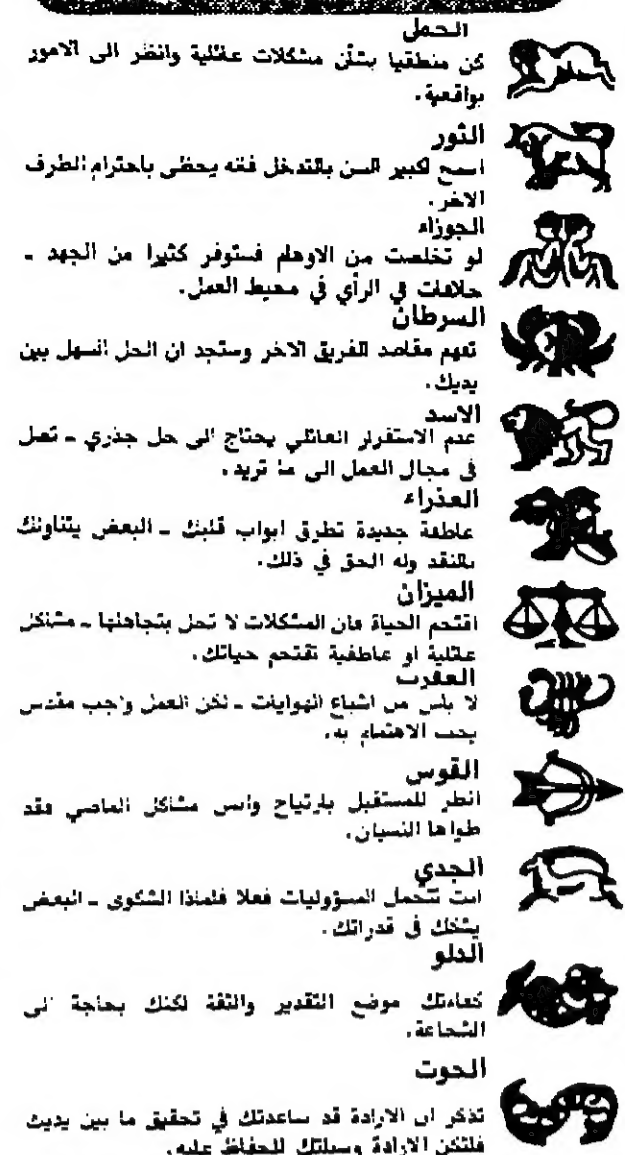 الحمل
كن منطقيا بشأن مشكلات عائلية وانظر الى الامور
بواقعية.
الثور
اسمح لكبير السن بالتدخل فانه يحظى باحترام الطرف
الاخر.
الجوزاء
لو تخلصت من الاوهام فستوفر كثيرا من الجهد ـ
خلافات في الرأي في محيط العمل.
السرطان
تفهم مقاصد الفريق الاخر وستجد ان الحل السهل بين
يديك.
الاسد
عدم الاستقرار العائلي يحتاج الى حل جذري ـ تصل
في مجال العمل الى ما تريد.
العذراء
عاطفة جديدة تطرق ابواب قلبك ـ البعض يتناولك
بالنقد وله الحق في ذلك.
الميزان
اقتحم الحياة فان المشكلات لا تحل بتجاهلها ـ مشاكل
عائلية او عاطفية تقتحم حياتك.
العقرب
لا بأس من اشباع الهوايات ـ لكن العمل واجب مقدس
يجب الاهتمام به.
القوس
انظر للمستقبل بارتياح وانس مشاكل الماضي فقد
طواها النسيان.
الجدي
انت تتحمل المسؤوليات فعلا فلماذا الشكوى ـ البعض
يشكك في قدراتك.
الدلو
كفاءتك موضع التقدير والثقة لكنك بحاجة الى
الشجاعة.
الحوت
تذكر ان الارادة قد ساعدتك في تحقيق ما بين يديك
فلتكن الارادة وسيلتك للحفاظ عليه.